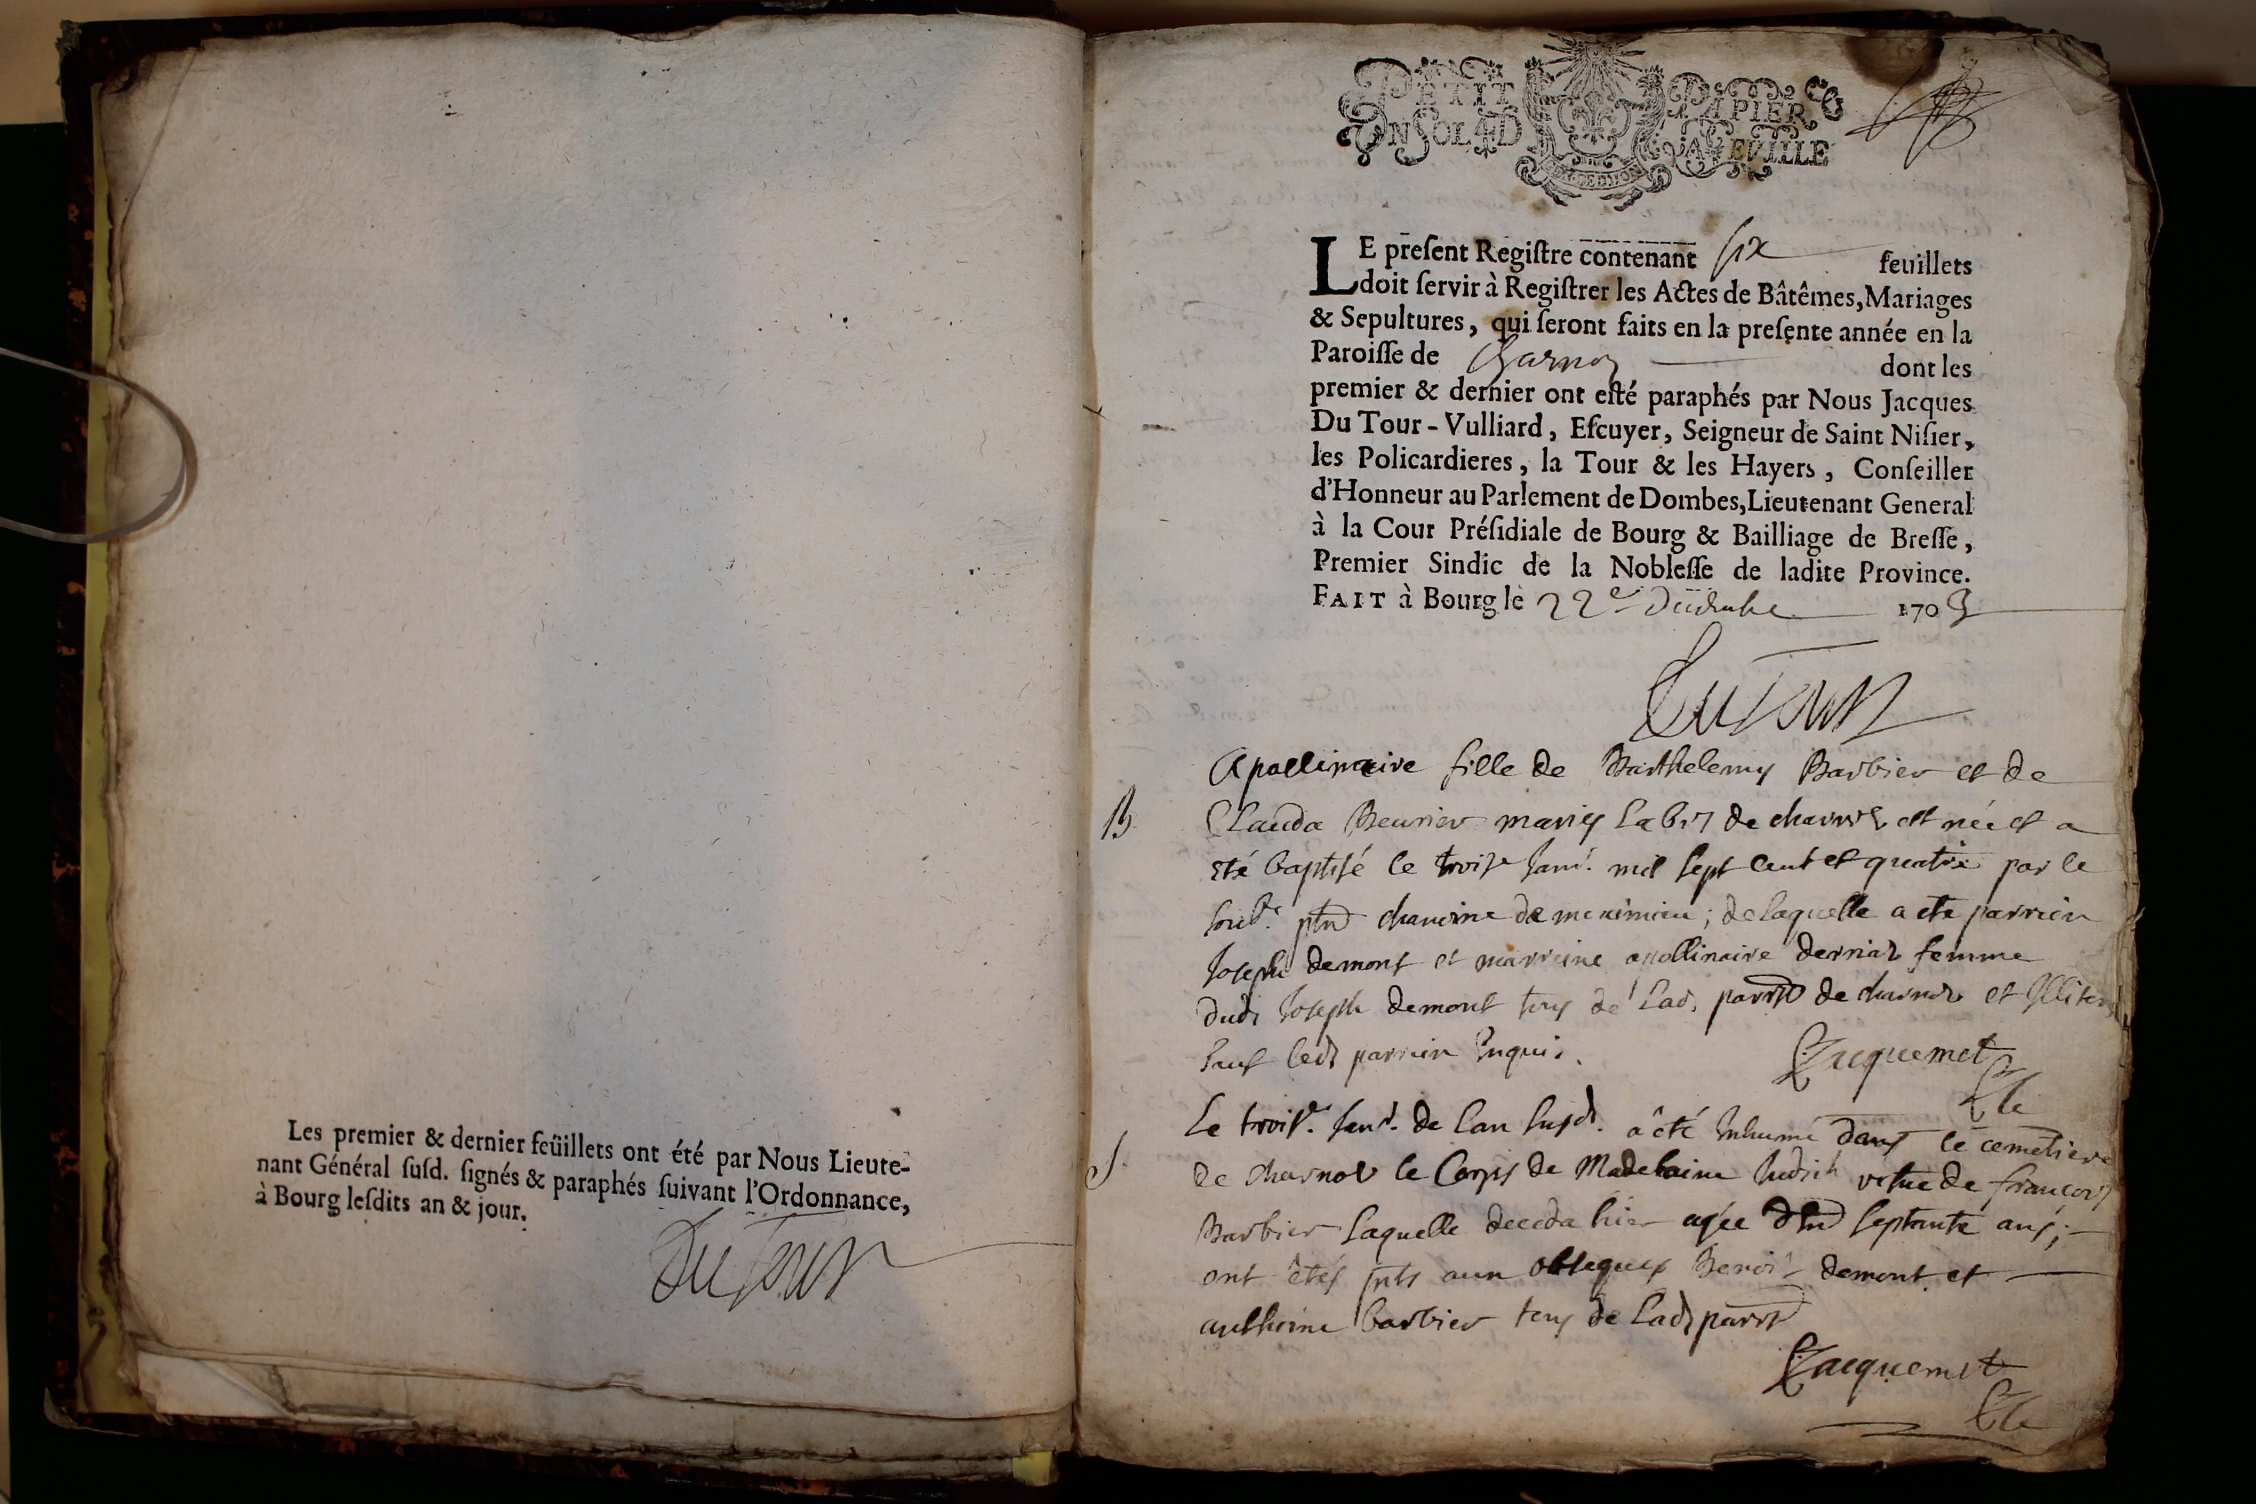 Les premier & dernier feüillets ont été par Nous Lieute-
nant Général susd. signés & paraphés suivant l'Ordonnance,
à Bourg lesdits an & jour.
Dutour
PETIT PAPIER
UN SOL 4 D LA FEVILLE
LE present Registre contenant six feuillets
doit servir à Registrer les Actes de Bâtêmes, Mariages
& Sepultures, qui seront faits en la presente année en la
Paroisse de Charnoz dont les
premier & dernier ont esté paraphés par Nous Jacques
Du Tour-Vulliard, Escuyer, Seigneur de Saint Nisier,
les Policardieres, la Tour & les Hayers, Conseiller
d'Honneur au Parlement de Dombes, Lieutenant General
à la Cour Présidiale de Bourg & Bailliage de Bresse,
Premier Sindic de la Noblesse de ladite Province.
FAIT à Bourg le 22e Decembre 1703
Dutour
Apollinaire fille de Barthelemy Barbier et de
B Clauda Beurier mariés de charnoz est née et a
eté baptisé le troise Janr. mil sept cent et quatre par le
chanoine de meximieu; de laquelle a ete parrien
Joseph demont et marreine apollinaire femme
dud. Joseph demont tous de lad. parrse de charnoz et Illiterés
sauf led. parrien Enquis.
Jacquemet
Le troise. Janr. de l'an susd. a êté Inhumé dans le cemetiere
S de charnoz le Corps de Madelaine vefue de françois
Barbier laquelle deceda hier agée d'en septante ans;
ont êtés pnts aux obseques Benoit demont et
anthoine barbier tous de lad. parrse
Jacquemet